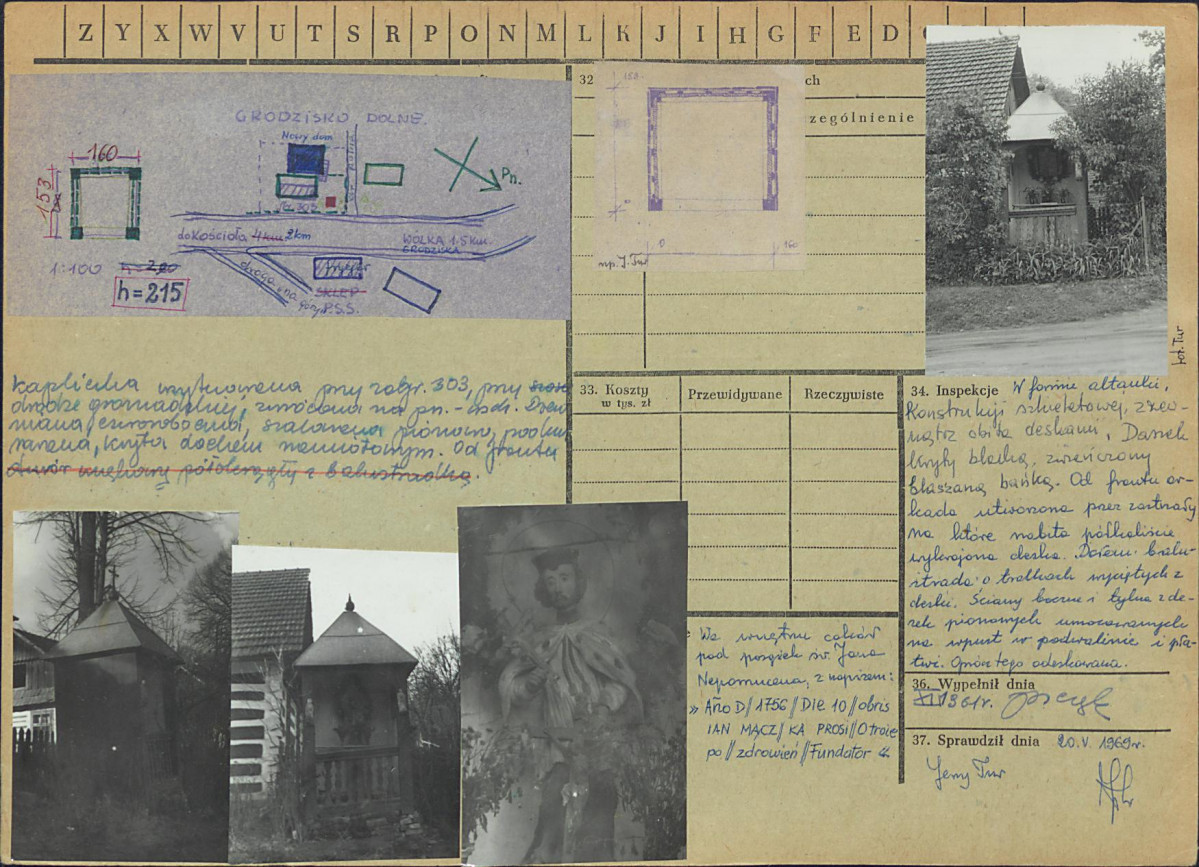 Z Y X W V U T S R P O N M L K J I H G F E D
GRODZISKO DOLNE.
Nowy dom
160
153
Pn.
Nr 303
do Kościoła 4 km 2 km
WOLKA 1.5 km.
GRODZISKA
droga na Góry
SKLEP
P.S.S.
1:100 h=2,00
h=215
32
ch
zególnienie
150
0
160
np. J. Tur
fot. Tur
Kapliczka usytuowana przy zagr. 303, przy szosie
drodze gromadzkiej, zwrócona na pn.-wsch. Drew
niana, czworoboczna, szalowana pionowo,
kryta dachem namiotowym. Od frontu
otwór wnękowy półokrągły z balustradką.
33. Koszty
w tys. zł
Przewidywane
Rzeczywiste
34. Inspekcje W formie altanki,
Konstrukcji szkieletowej, zzew-
nątrz obita deskami, Daszek
kryty blachą, zwieńczony
blaszaną bańką. Od frontu ar-
kada utworzona przez zastrzały
na które nabita półkoliście
wykrojona deska. Dołem balu-
strada o tralkach wyciętych z
deski. Ściany boczne i tylna z de-
sek pionowych umocowanych
na wpust w podwalinie i pła-
twi. Oprócz tego odeskowana.
We wnętrzu cokół
pod posążek św. Jana
Nepomucena, z napisem:
„Año D/ 1756 // Die 10 // obris
IAN MĄCZ/ KA PROSI // O troie
po // zdrowień // Fundator
36. Wypełnił dnia
XI 1961r.
37. Sprawdził dnia 20.V.1969r.
Jerzy Tur